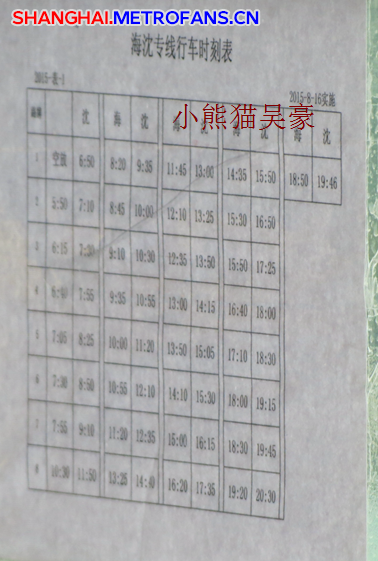 SHANGHAI.METROFANS.CN
海沈专线行车时刻表
2015-8-16实施
小熊猫吴豪
沈 海 沈 海 沈 海 沈 海 沈
1 空放 6:50 8:20 9:35 11:45 13:00 14:35 15:50 18:50 19:46
2 5:50 7:10 8:45 10:00 12:10 13:25 15:30 16:50
3 6:15 7:30 9:10 10:30 12:35 13:50 15:50 17:25
4 6:40 7:55 9:35 10:55 13:00 14:15 16:40 18:00
5 7:05 8:25 10:00 11:20 13:50 15:05 17:10 18:30
6 7:30 8:50 10:55 12:10 14:10 15:30 18:00 19:15
7 7:55 9:10 11:20 12:35 15:00 16:15 18:30 19:45
8 10:30 11:50 13:25 14:40 16:20 17:35 19:20 20:30